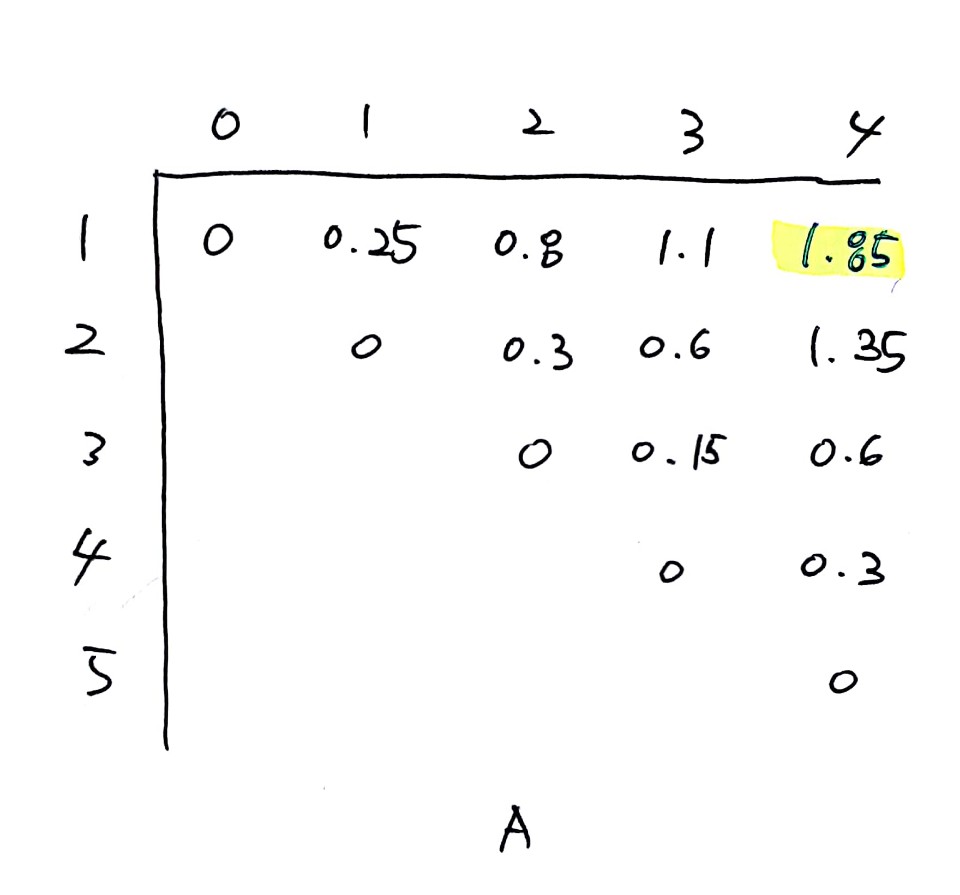 0 1 2 3 4
1 0 0.25 0.8 1.1 1.85
2 0 0.3 0.6 1.35
3 0 0.15 0.6
4 0 0.3
5 0
A